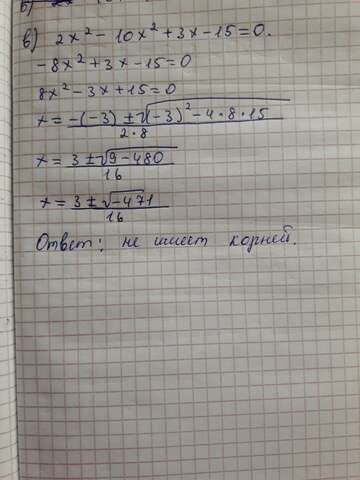 в) 2x² - 10x² + 3x - 15 = 0.
-8x² + 3x - 15 = 0
8x² - 3x + 15 = 0
x = -(-3) ± √(-3)² - 4 · 8 · 15 / 2 · 8
x = 3 ± √9 - 480 / 16
x = 3 ± √-471 / 16
Ответ: не имеет корней.